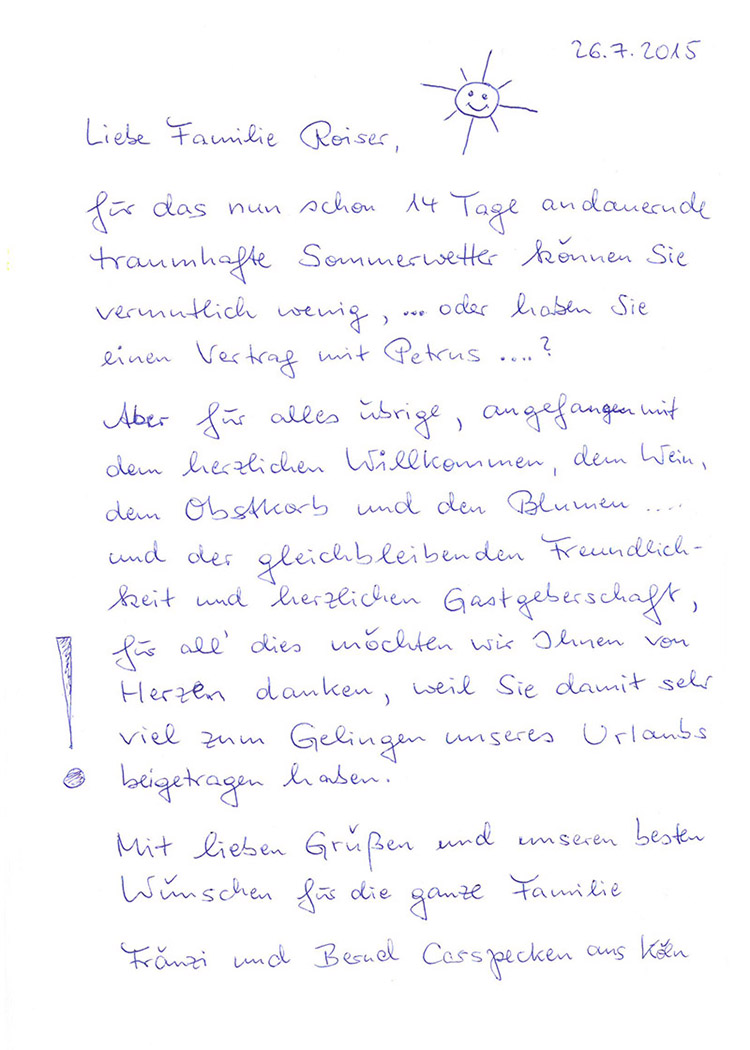 26.7.2015
Liebe Familie Roiser,
für das nun schon 14 Tage andauernde
traumhafte Sommerwetter können Sie
vermutlich wenig, ... oder haben Sie
einen Vertrag mit Petrus ....?
Aber für alles übrige, angefangen mit
dem herzlichen Willkommen, dem Wein,
dem Obstkorb und den Blumen ....
und der gleichbleibenden Freundlich-
keit und herzlichen Gastgeberschaft,
für all' dies möchten wir Ihnen von
Herzen danken, weil Sie damit sehr
viel zum Gelingen unseres Urlaubs
beigetragen haben.
Mit lieben Grüßen und unseren besten
Wünschen für die ganze Familie
Fränzi und Bernd Casspecken aus Köln